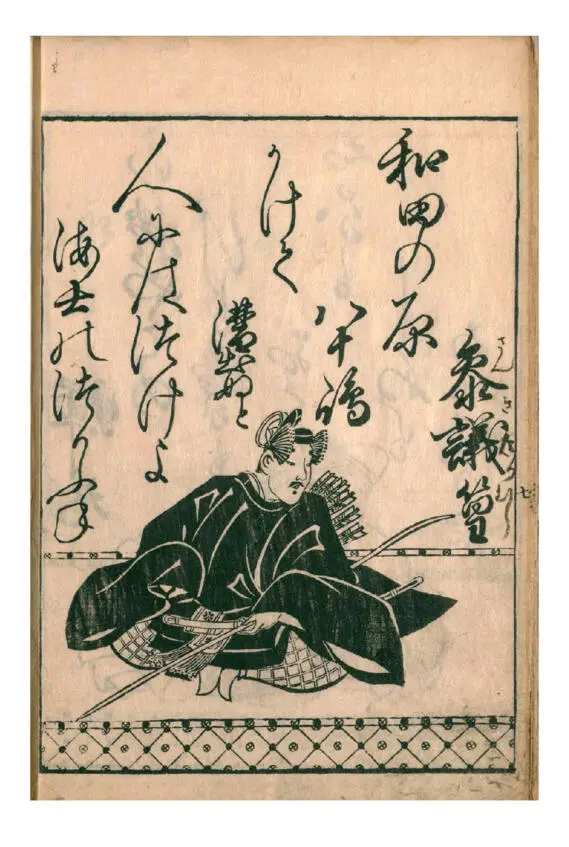 参議篁
さんぎたかむら
和田の原
八十嶋
かけて
漕出ぬと
人にはつけよ
海士のつりふね
七